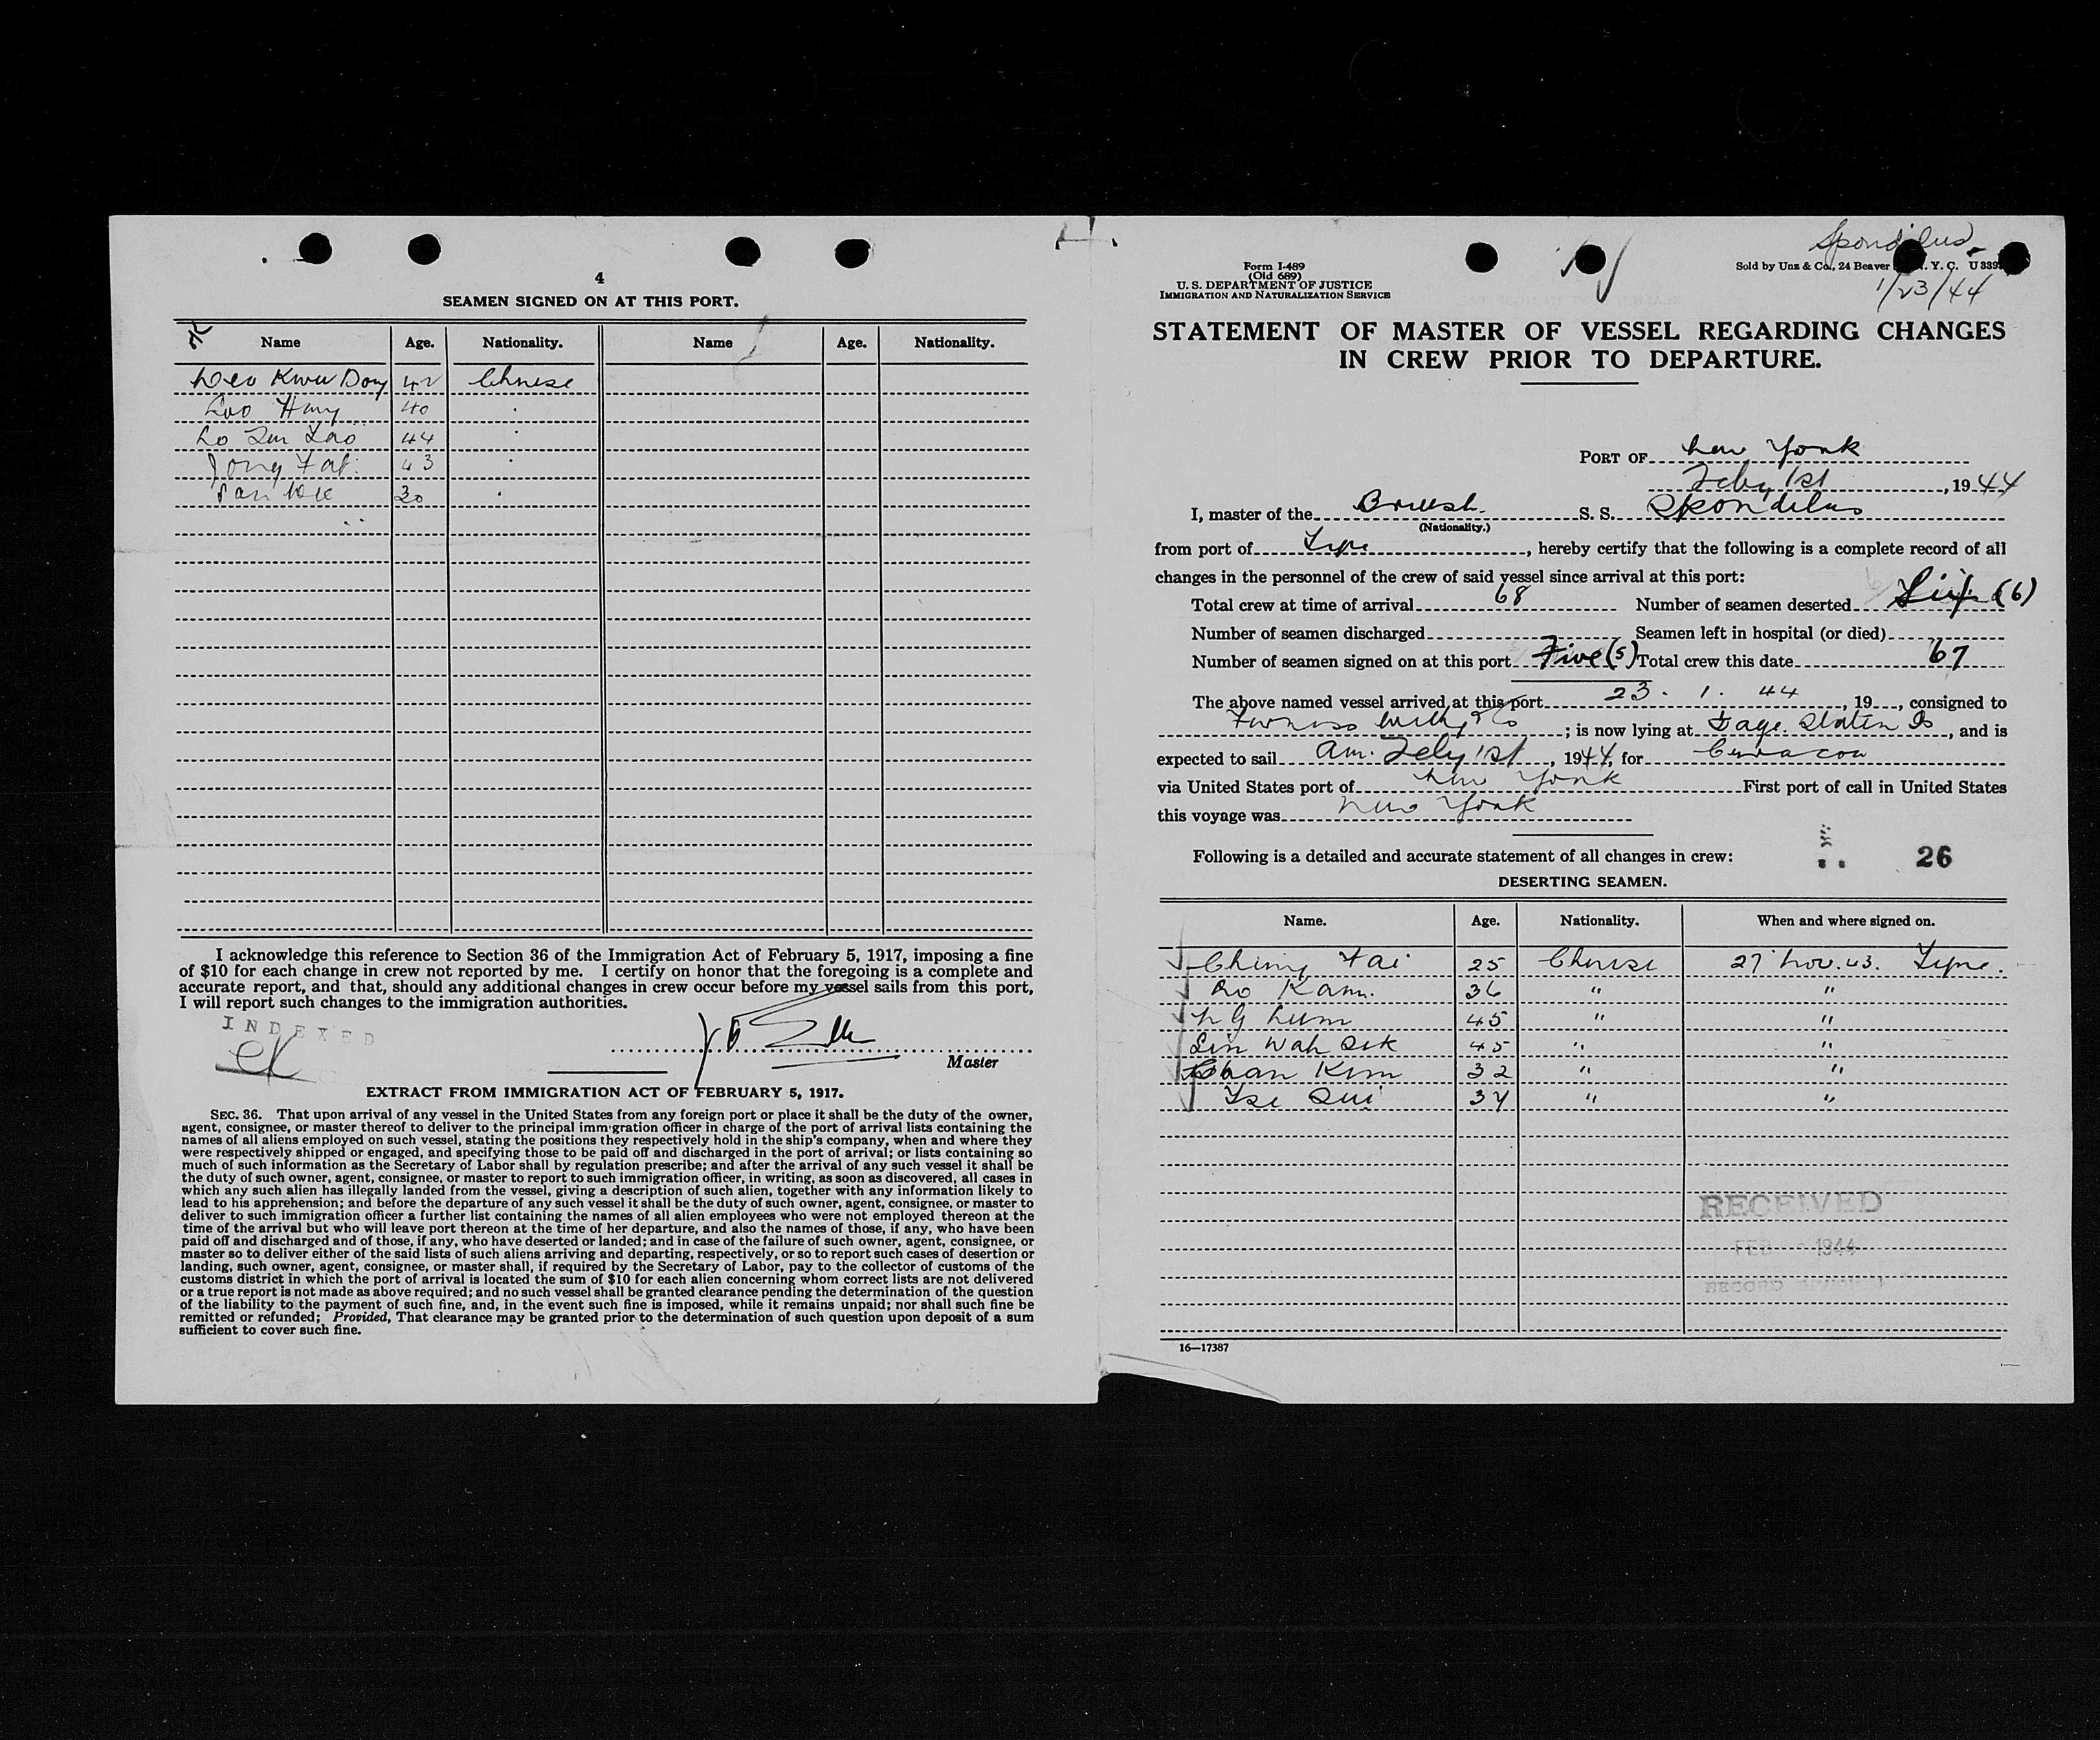 4
SEAMEN SIGNED ON AT THIS PORT.
Name Age. Nationality. Name Age. Nationality.
Kwu Dong 42 Chinese
40
44
Jong Fat 43
30
I acknowledge this reference to Section 36 of the Immigration Act of February 5, 1917, imposing a fine
of $10 for each change in crew not reported by me. I certify on honor that the foregoing is a complete and
accurate report, and that, should any additional changes in crew occur before my vessel sails from this port,
I will report such changes to the immigration authorities.
INDEXED
Master
EXTRACT FROM IMMIGRATION ACT OF FEBRUARY 5, 1917.
SEC. 36. That upon arrival of any vessel in the United States from any foreign port or place it shall be the duty of the owner,
agent, consignee, or master thereof to deliver to the principal immigration officer in charge of the port of arrival lists containing the
names of all aliens employed on such vessel, stating the positions they respectively hold in the ship's company, when and where they
were respectively shipped or engaged, and specifying those to be paid off and discharged in the port of arrival; or lists containing so
much of such information as the Secretary of Labor shall by regulation prescribe; and after the arrival of any such vessel it shall be
the duty of such owner, agent, consignee, or master to report to such immigration officer, in writing, as soon as discovered, all cases in
which any such alien has illegally landed from the vessel, giving a description of such alien, together with any information likely to
lead to his apprehension; and before the departure of any such vessel it shall be the duty of such owner, agent, consignee, or master to
deliver to such immigration officer a further list containing the names of all alien employees who were not employed thereon at the
time of the arrival but who will leave port thereon at the time of her departure, and also the names of those, if any, who have been
paid off and discharged and of those, if any, who have deserted or landed; and in case of the failure of such owner, agent, consignee, or
master so to deliver either of the said lists of such aliens arriving and departing, respectively, or so to report such cases of desertion or
landing, such owner, agent, consignee, or master shall, if required by the Secretary of Labor, pay to the collector of customs of the
customs district in which the port of arrival is located the sum of $10 for each alien concerning whom correct lists are not delivered
or a true report is not made as above required; and no such vessel shall be granted clearance pending the determination of the question
of the liability to the payment of such fine, and, in the event such fine is imposed, while it remains unpaid; nor shall such fine be
remitted or refunded; Provided, That clearance may be granted prior to the determination of such question upon deposit of a sum
sufficient to cover such fine.
Spondilus
Form I-489
(Old 689)
U. S. DEPARTMENT OF JUSTICE
IMMIGRATION AND NATURALIZATION SERVICE
Sold by Unz & Co., 24 Beaver N. Y. C. U 339
1/23/44
STATEMENT OF MASTER OF VESSEL REGARDING CHANGES
IN CREW PRIOR TO DEPARTURE.
PORT OF New York
Feby 1st, 1944
I, master of the British S. S. Spondilus
(Nationality.)
from port of Tyne, hereby certify that the following is a complete record of all
changes in the personnel of the crew of said vessel since arrival at this port:
Total crew at time of arrival 68 Number of seamen deserted Six (6)
Number of seamen discharged Seamen left in hospital (or died)
Number of seamen signed on at this port Five (5) Total crew this date 67
The above named vessel arrived at this port 23. 1. 44, 19, consigned to
Furness Withy & Co; is now lying at Staten Is, and is
expected to sail am. Feby 1st, 1944, for Curacoa
via United States port of New York First port of call in United States
this voyage was New York
Following is a detailed and accurate statement of all changes in crew:
26
DESERTING SEAMEN.
Name. Age. Nationality. When and where signed on.
Ching Fai 25 Chinese 27 Nov. 43. Tyne.
Lo Kam. 36 " "
Ng Lum 45 " "
Lin Wah Sek 45 " "
Chan Kim 32 " "
Tse Sui 34 " "
RECEIVED
FEB 1944
RECORD
16—17387